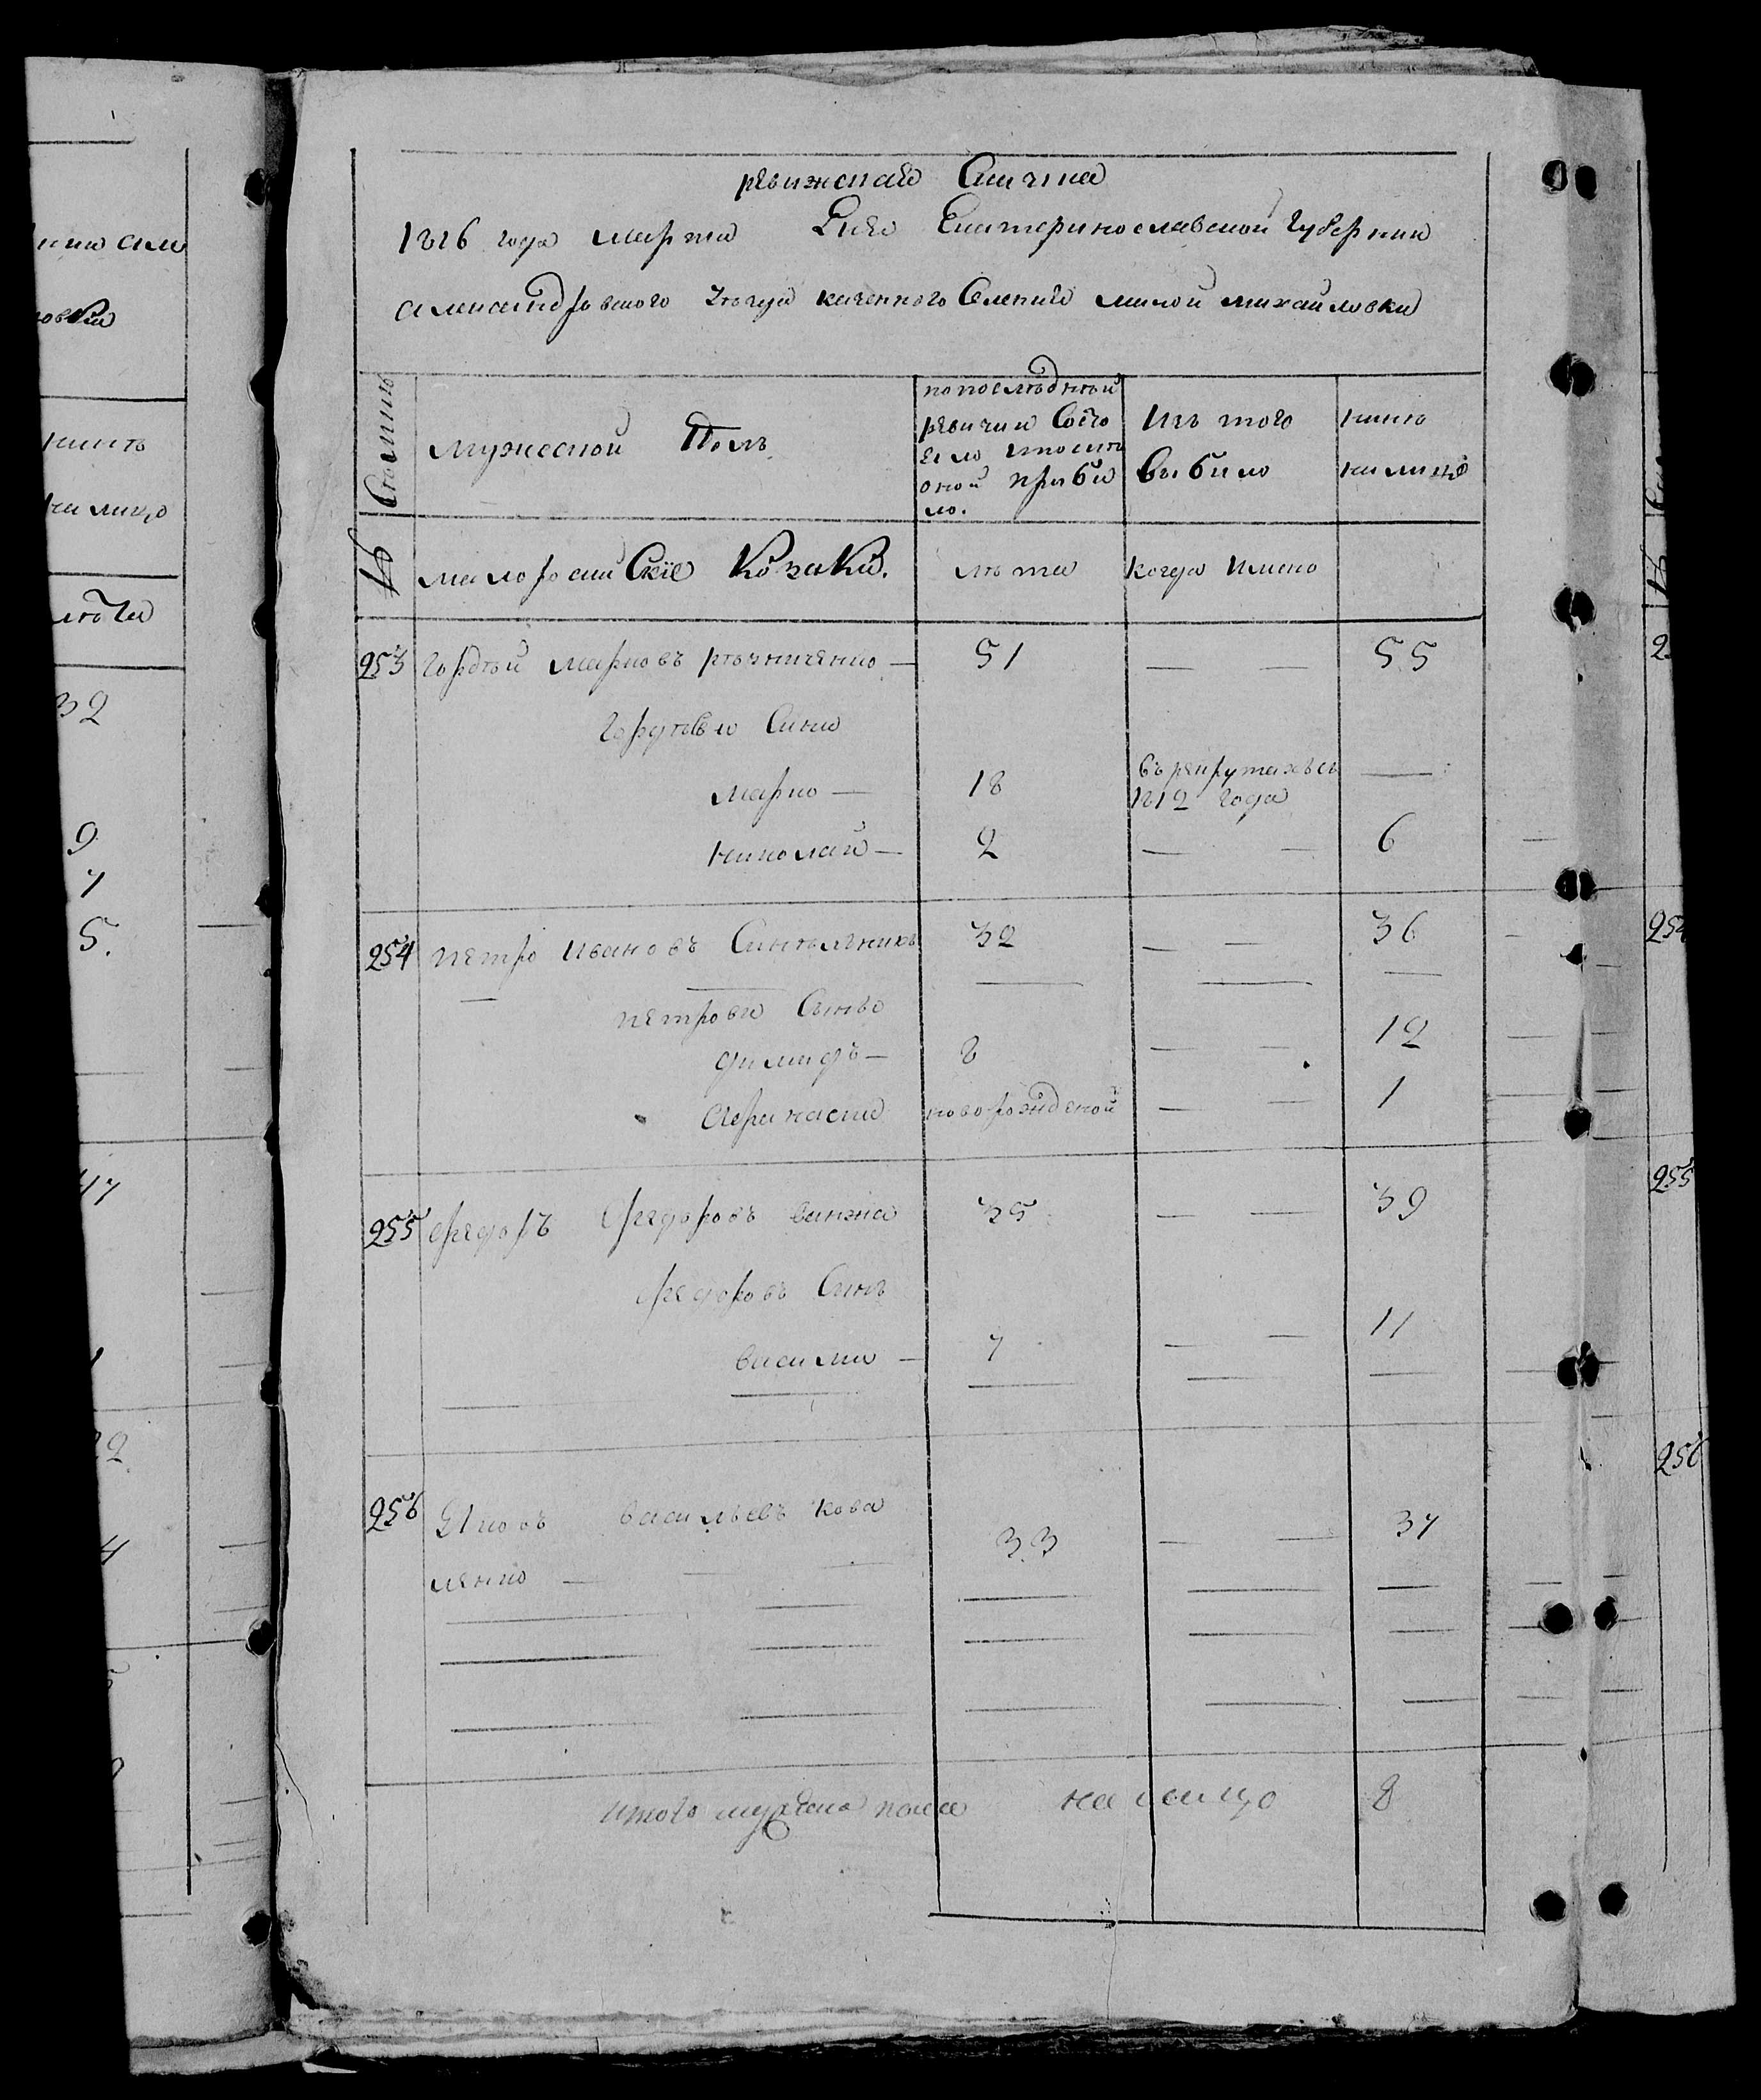 ревижская Скаска
1816 года марта Дня Екатеринославской Губернии
александровского уезда казенного Селения малой михайловки
Семии
мужеской Полъ
попоследней
ревизии Состо
яло ипосля
оной прыбы
ло.
Изъ того
выбило
ныне
налицо
№
малоросийскїе Козаки.
лета
когда имено
253 Гордей марковъ резниченко — 51 — — 55
Гордеевы Сини
марко — 18 въ рекрутахъ съ 1812 года —
николай — 2 — — 6
254 петро Ивановъ Синельникъ 32 — — 36
петрови Сыны
демидъ — 8 — — 12
Афанасий новорожденой — — 1
255 федоръ Федоровъ ванжа 35 — — 39
федоровъ Синъ
васили — 7 — — 11
256 Яковъ васильевъ Кова
ленко — 33 — — 37
итого мужеска пола на лицо 8
налицо
32
9
7
5.
47
254
255
256